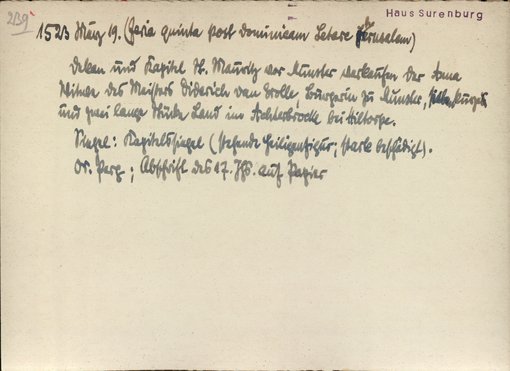 239
Haus Surenburg
1523 März 19. (feria quinta post dominicam Letare Jerusalem)
Dekan und Kapitel St. Mauritz vor Munster verkaufen der Anna
Witwe des Meisters Diderich van Grolle, Burgerin zu Munster,
und zwei lange Stücke Land im Achterbrocke bei Hiltorpe.
Siegel: Kapitelssiegel (stehende Heiligenfigur; stark beschädigt).
Or. Perg; Abschrift des 17. Jhs. auf Papier